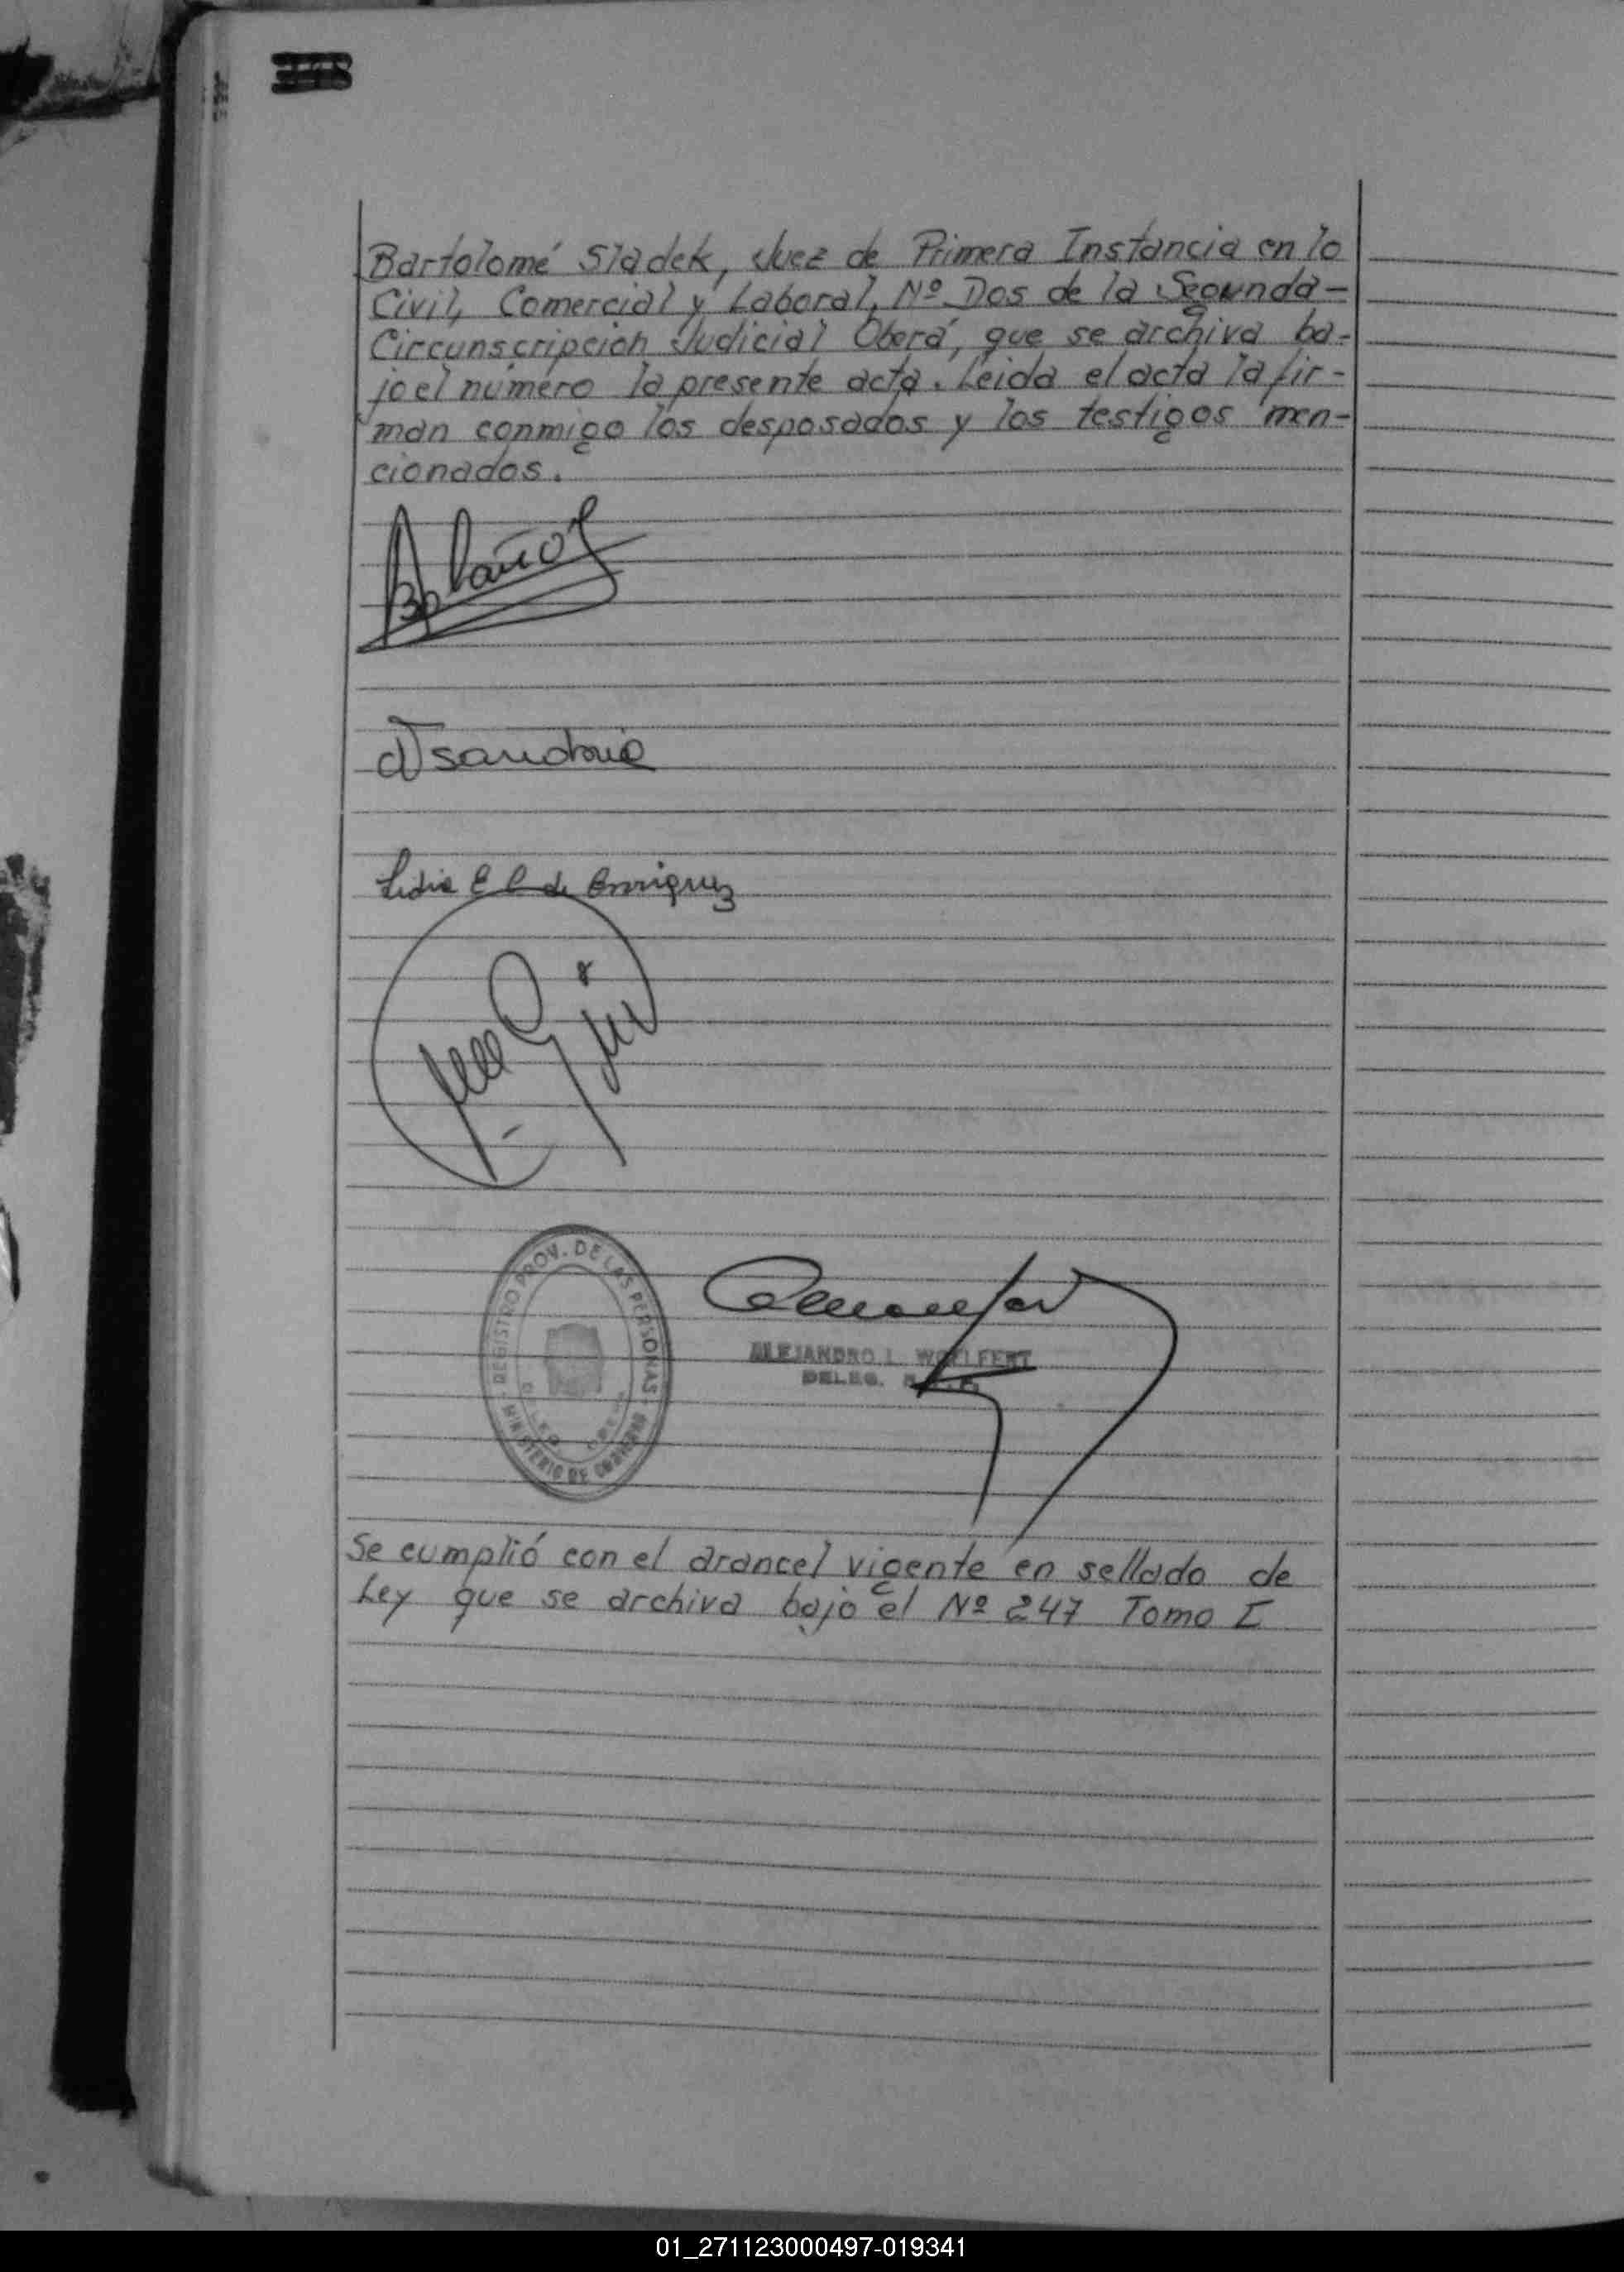 Bartolomé Sladek, Juez de Primera Instancia en lo
Civil, Comercial y Laboral, Nº Dos de la Segunda-
Circunscripción Judicial Oberá, que se archiva ba-
jo el número la presente acta. Leida el acta la fir-
man conmigo los desposados y los testigos men-
cionados.
Lidia E C de Enriquez
REGISTRO PROV. DE LAS PERSONAS
MINISTERIO DE GOBIERNO
ALEJANDRO L. WOELFERT
DELEG.
Se cumplió con el arancel vigente en sellado de
Ley que se archiva bajo el Nº 247 Tomo I
01_271123000497-019341